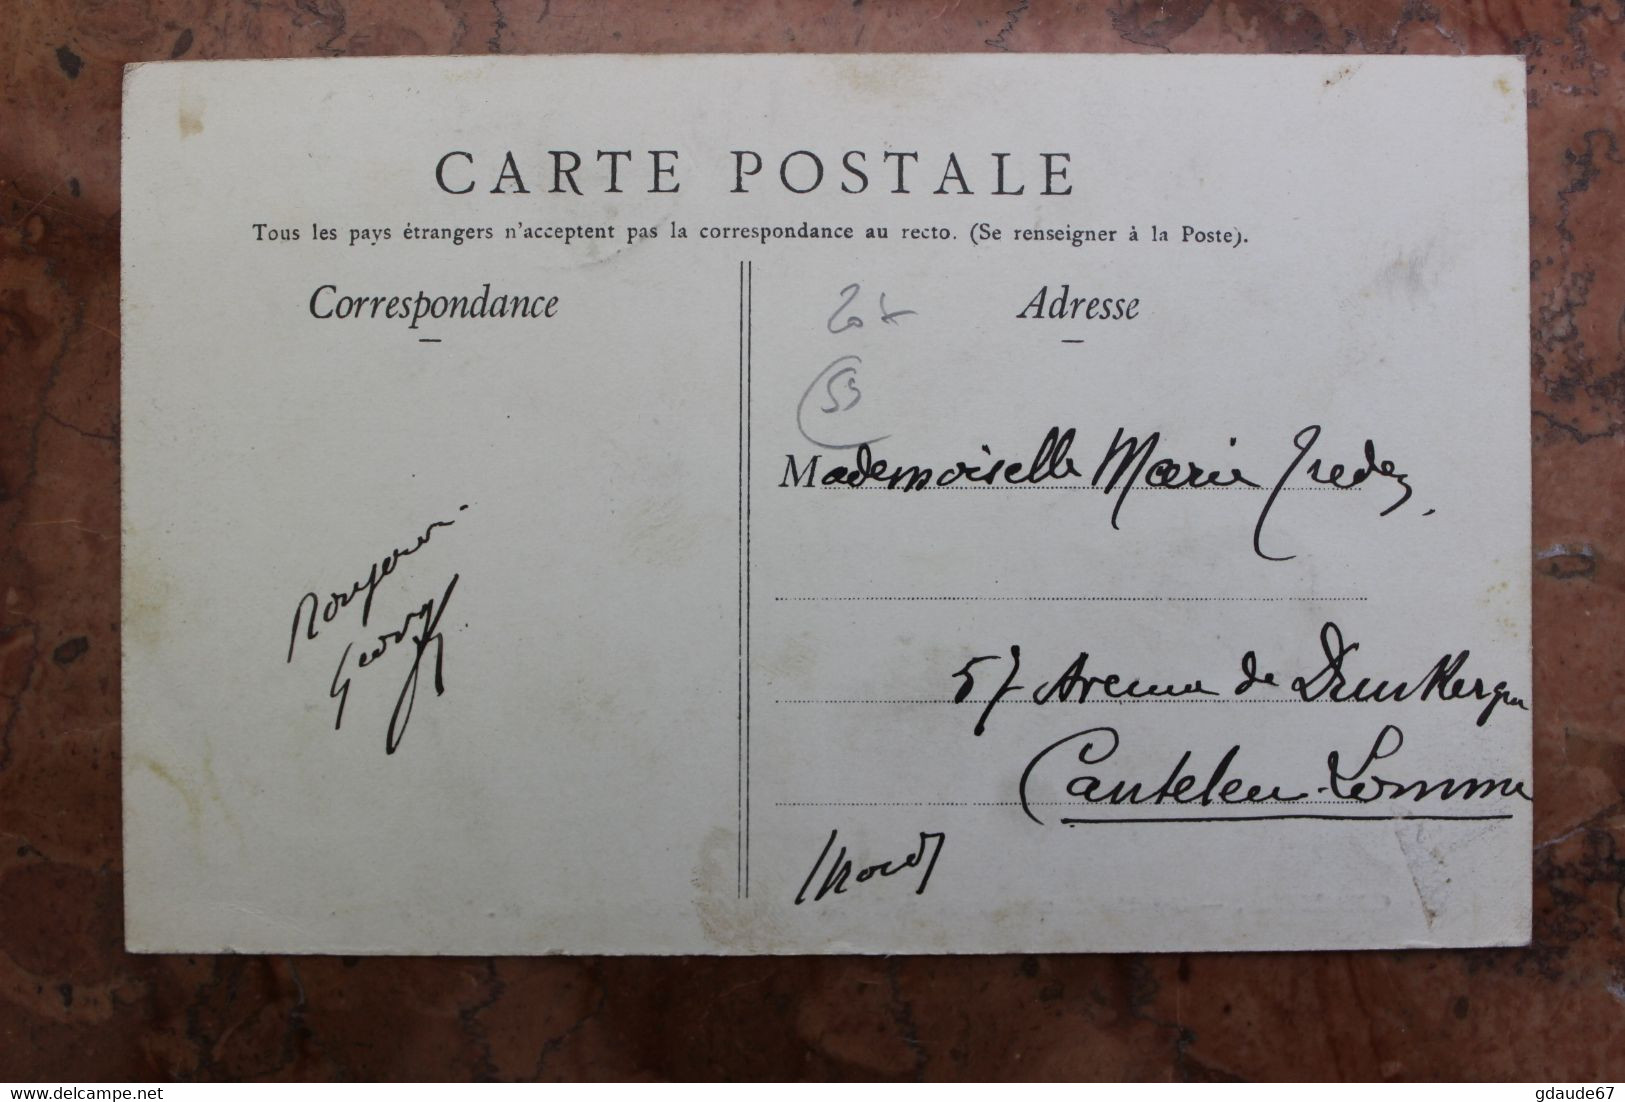 CARTE POSTALE
Tous les pays étrangers n'acceptent pas la correspondance au recto. (Se renseigner à la Poste).
Correspondance
Adresse
59
Mademoiselle Marie
57 Avenue de Dunkerque
Canteleu-Lomme
(Nord)
Bonjour.
Georges
www.delcampe.net
gdaude67